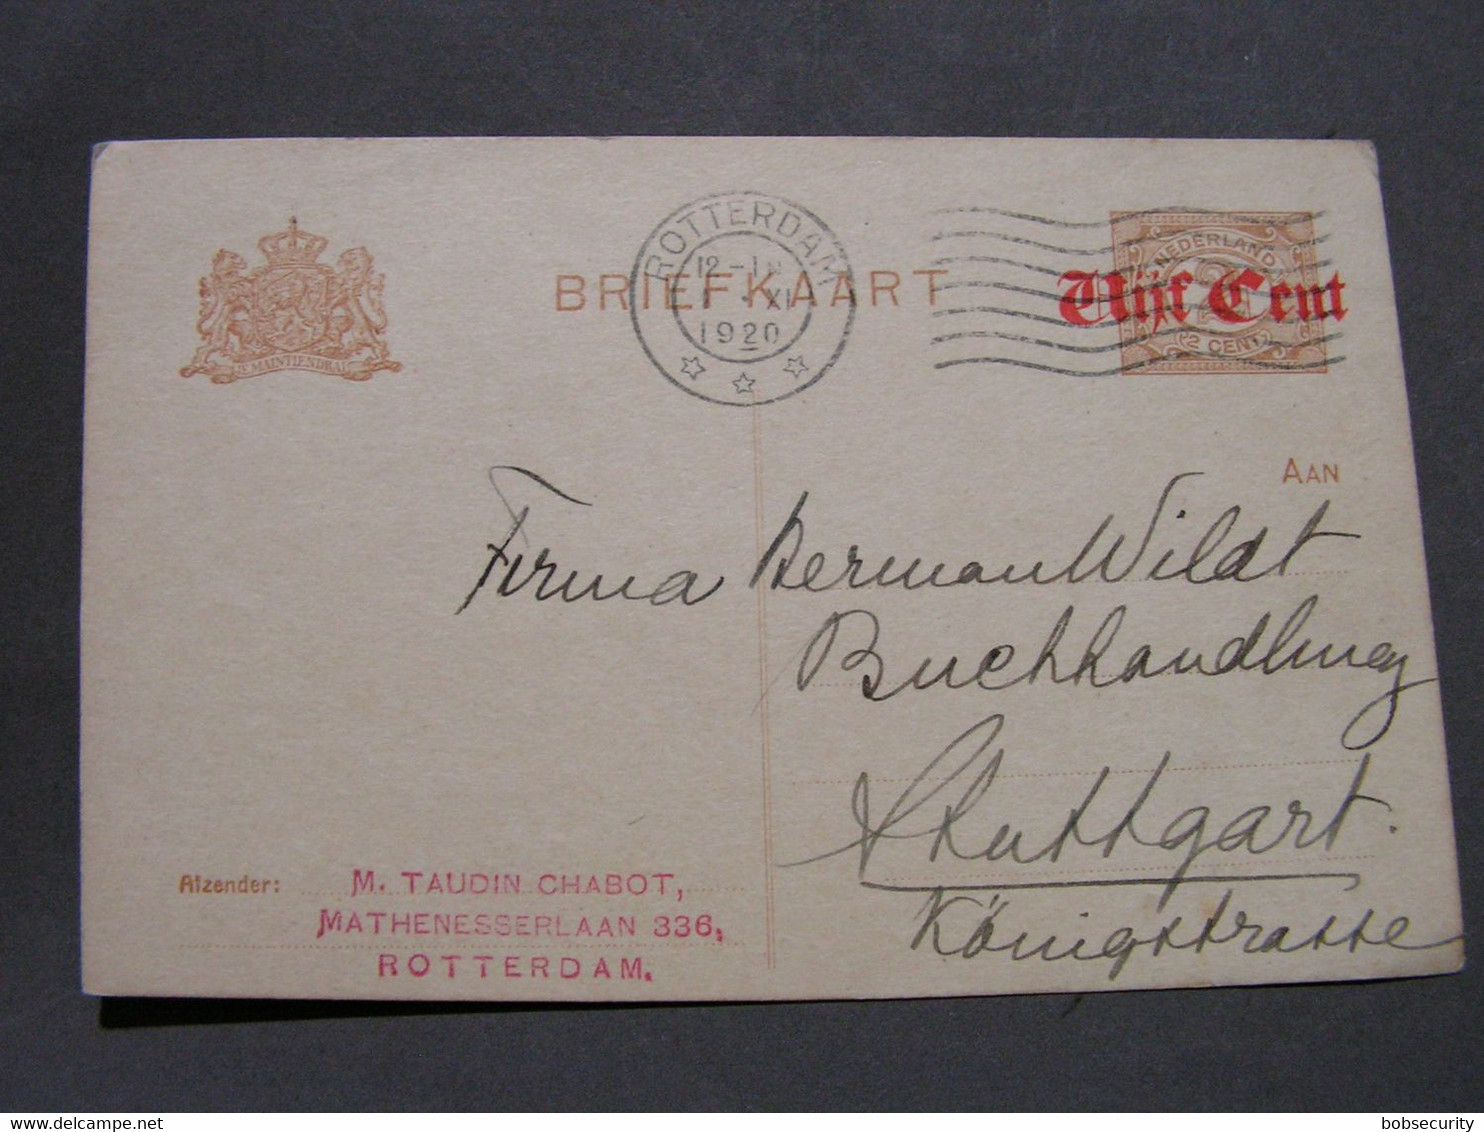 ROTTERDAM
12-1N
1 · XI
1920
BRIEFKAART
JE MAINTIENDRAI
NEDERLAND
Vijf Cent
2 CENT
AAN
Firma Herman Wildt
Buchhandlung
Stuttgart.
Königstrasse
Afzender: M. TAUDIN CHABOT,
MATHENESSERLAAN 336,
ROTTERDAM.
delcampe.net
bobsecurity